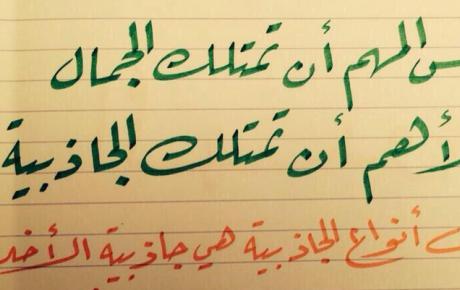 المهم أن تمتلك الجمال
الأهم أن تمتلك الجاذبية
أنواع الجاذبية هي جاذبية